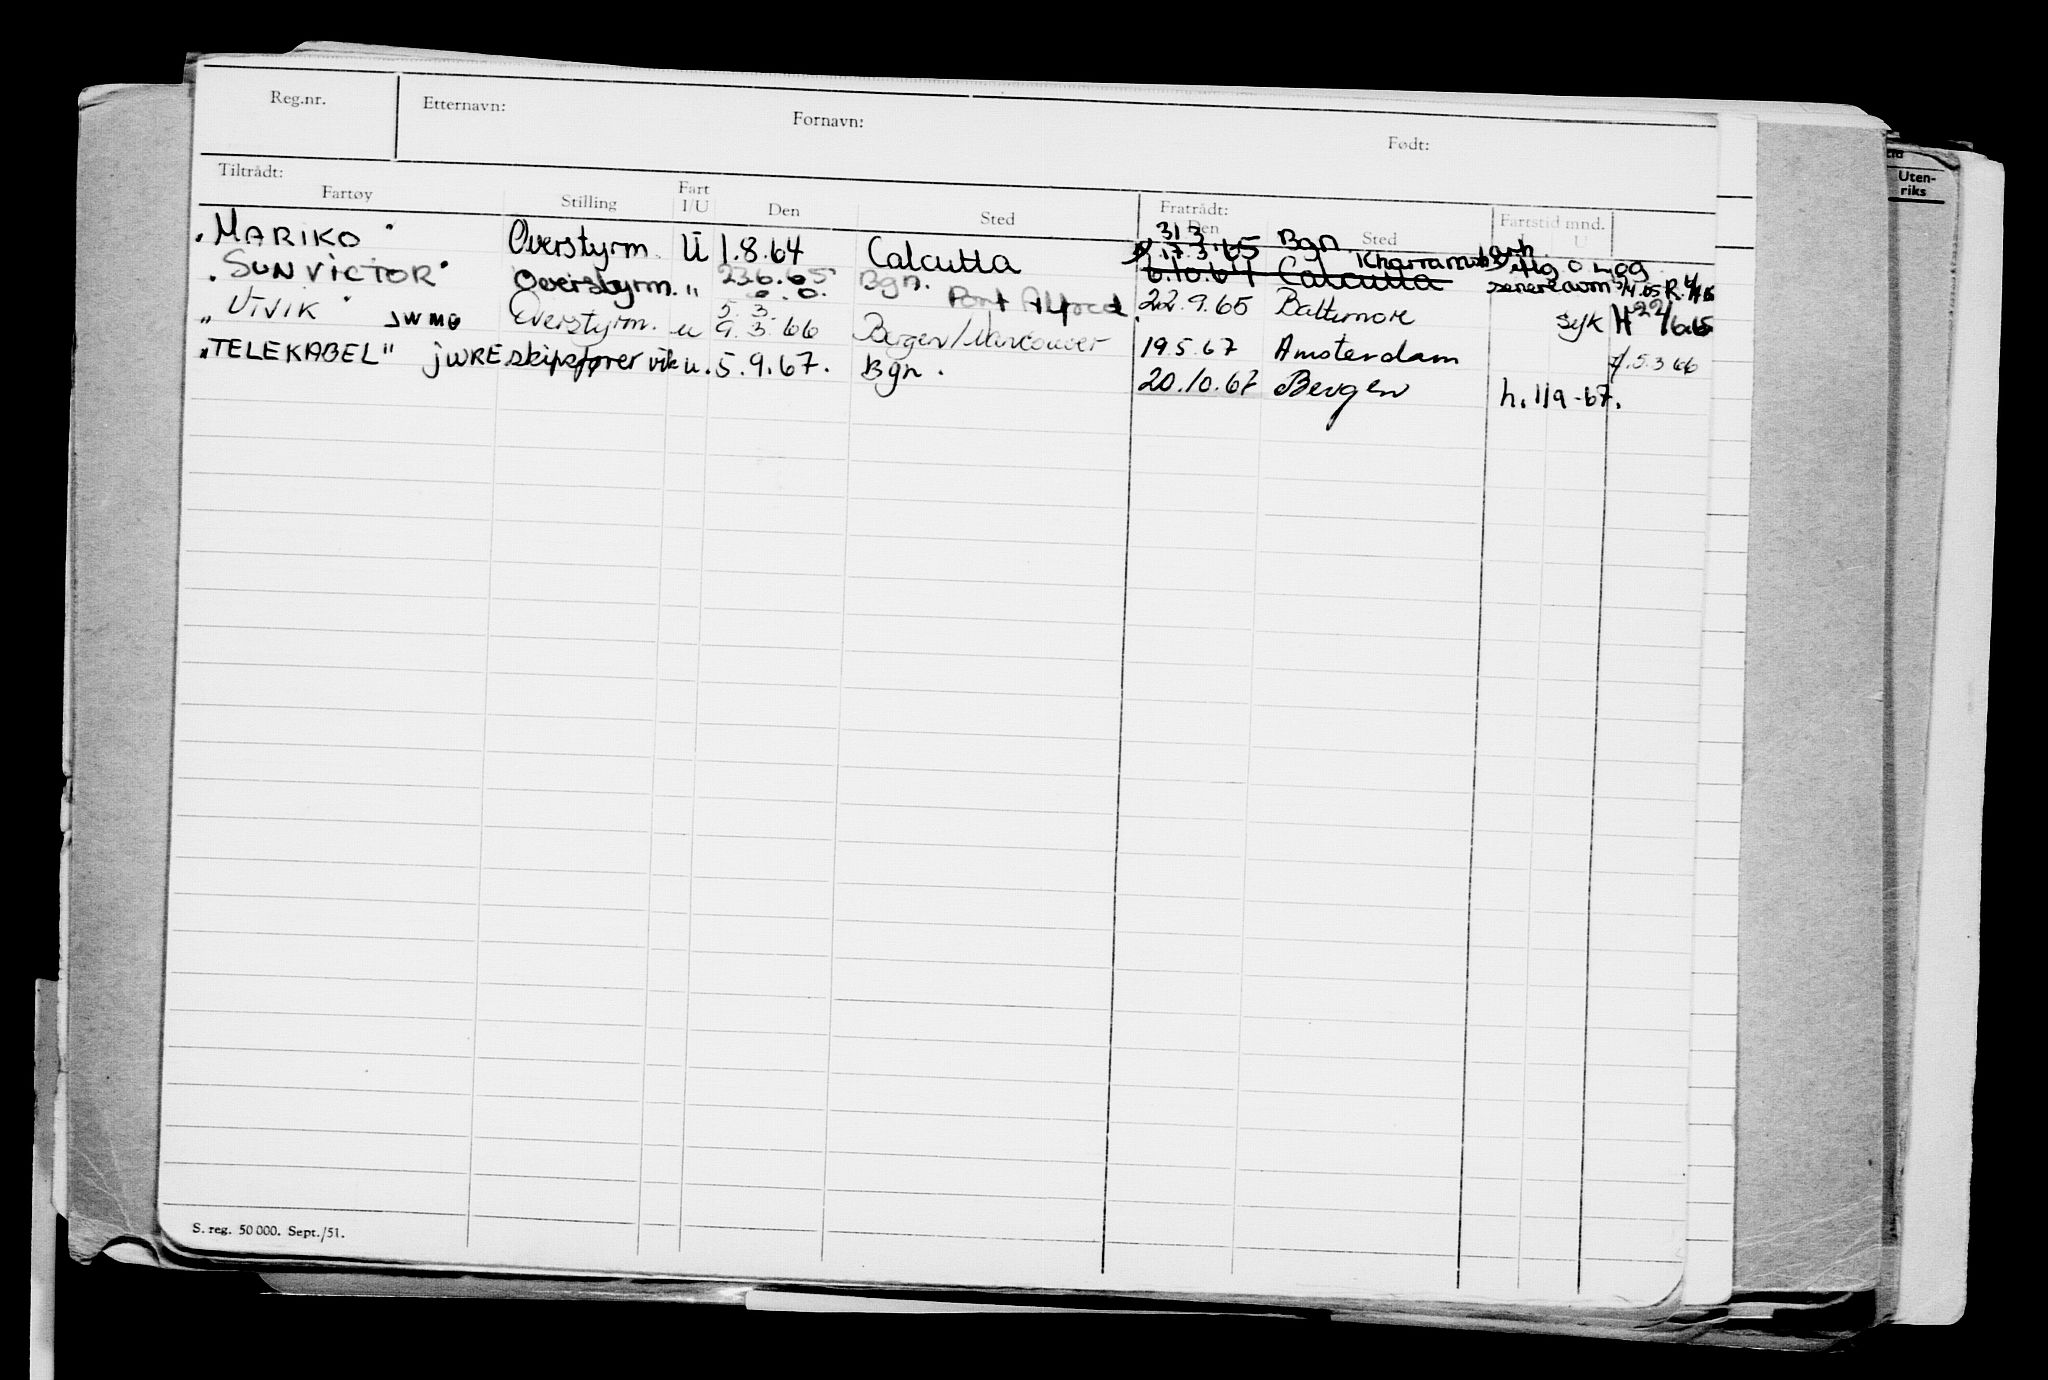 Reg.nr. Etternavn: Fornavn: Født:
Tiltrådt: Fratrådt:
Fartøy Stilling Fart I/U Den Sted Den Sted Fartstid mnd. I U
"MARIKO" Overstyrm. U 1.8.64 Calcutta 31 3 17.3.65 Bgn.
6.10.64 Calcutta
"SUNVICTOR" Overstyrm. " 23.6.65 Bgn. Port Alfred. 22.9.65 Baltimore syk H 22/6.65
"VIVIK" JWMG Overstyrm. u 5.3. 9.3.66 Bergen/Vancouver 19.5.67 Amsterdam 5.3 66
"TELEKABEL" JWRE skipsfører vik u. 5.9.67. Bgn. 20.10.67 Bergen h. 1/9-67.
S. reg. 50 000. Sept./51.
Uten-
riks